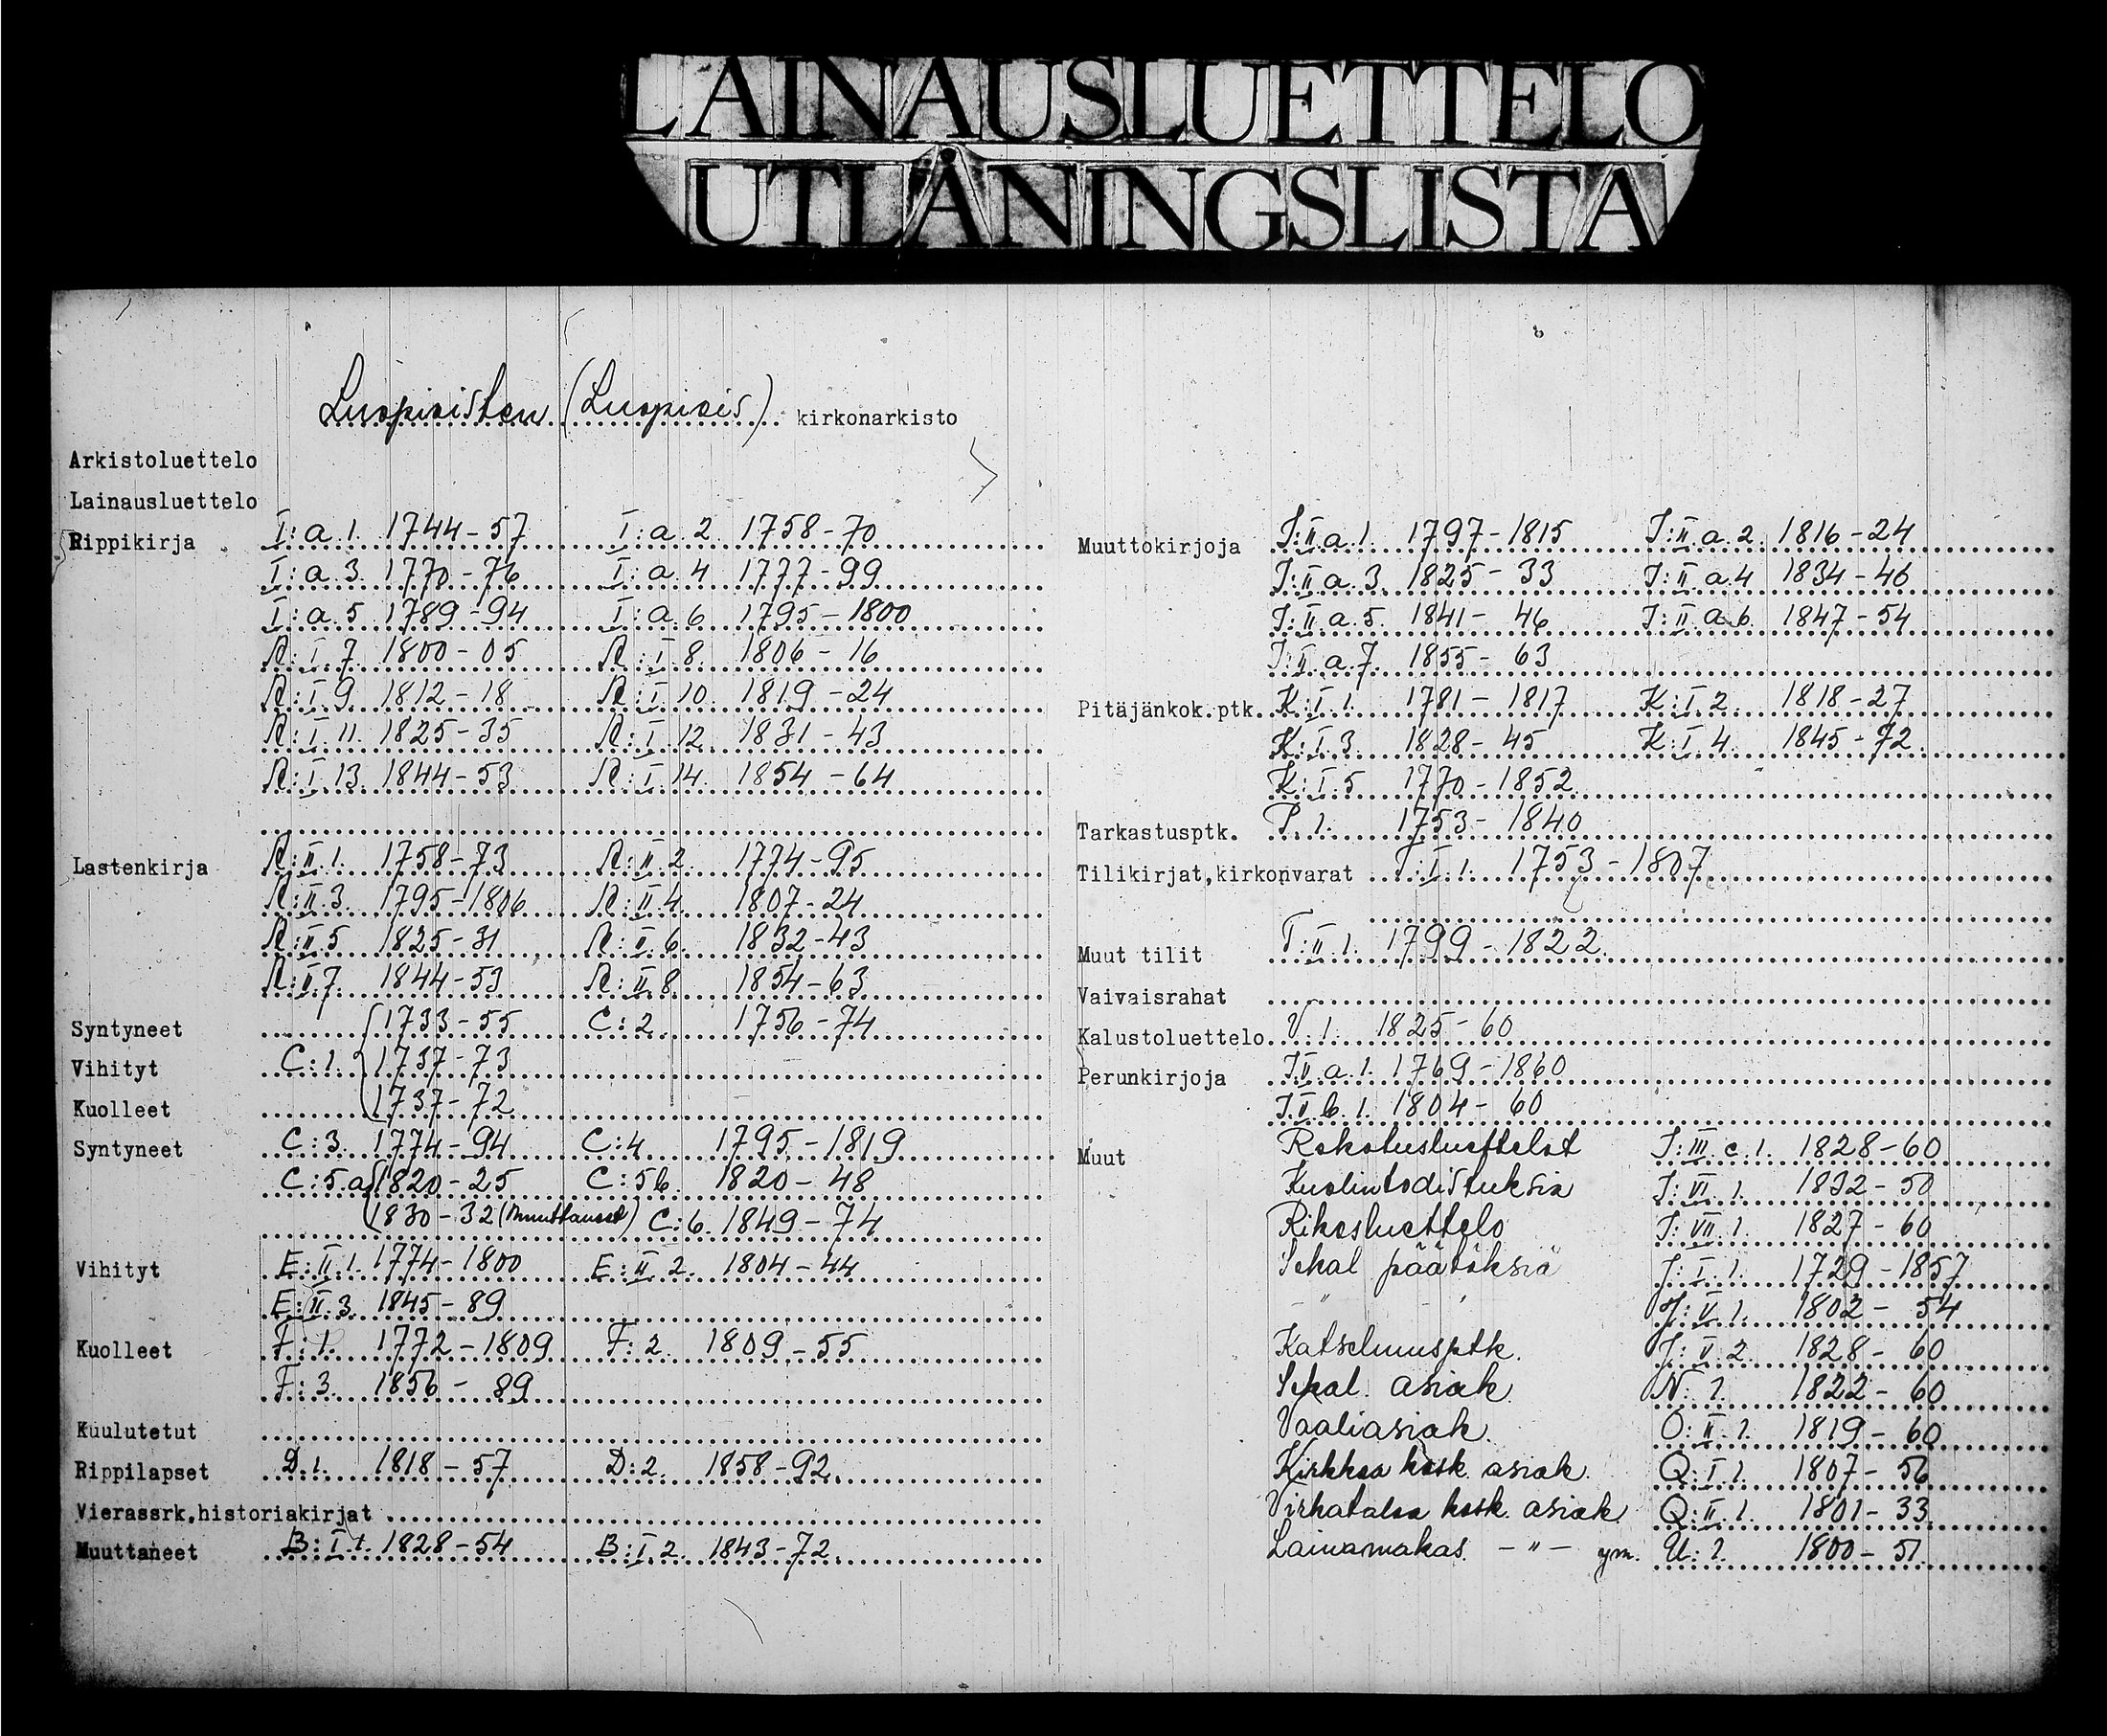 LAINAUSLUETTELO
UTLÅNINGSLISTA
Luopioisten (Luopiois) kirkonarkisto
Arkistoluettelo
Lainausluettelo
Rippikirja I:a.1. 1744-57 I:a.2 1758-70
I:a.3. 1770-76 I:a.4 1777-99
I:a.5 1789-94 I:a.6 1795-1800
R:I.7. 1800-05 R:I.8. 1806-16
R:I.9 1812-18 R:I.10. 1819-24
R:I.11. 1825-35 R:I.12. 1831-43
R:I.13. 1844-53 R:I.14. 1854-64
Lastenkirja R:II.1. 1758-73 R:II.2. 1774-95
R:II.3. 1795-1806 R:II.4. 1807-24
R:II.5 1825-31 R:II.6. 1832-43
R:II.7. 1844-53 R:II.8 1854-63
Syntyneet 1733-55 C:2. 1756-74
Vihityt C:1. 1737-73
Kuolleet 1737-72
Syntyneet C:3. 1774-94 C:4 1795-1819
C:5.a 1820-25 C:5b. 1820-48
1830-32 (muuttaneet) C:6. 1849-74
Vihityt E:II.1. 1774-1800 E:II.2. 1804-44
E:II.3. 1845-89
Kuolleet F:1. 1772-1809 F:2. 1809-55
F:3. 1856-89
Kuulutetut
Rippilapset D.1. 1818-57 D:2. 1858-92.
Vierassrk,historiakirjat
Muuttaneet B:I.1. 1828-54 B:I.2. 1843-72.
Muuttokirjoja J:II.a.1. 1797-1815 J:II.a.2. 1816-24
J:II.a.3. 1825-33 J:II.a.4 1834-46
J:II.a.5. 1841-46 J:II.a.6. 1847-54
J:II.a.7. 1855-63
Pitäjänkok.ptk. K:I.1. 1781-1817 K:I.2. 1818-27
K:I.3. 1828-45 K:I.4. 1845-72
K:I.5 1770-1852
Tarkastusptk. P.1. 1753-1840
Tilikirjat,kirkonvarat T:I.1. 1753-1807
Muut tilit T:II.1. 1799-1822.
Vaivaisrahat
Kalustoluettelo V.1. 1825-60
Perunkirjoja J.V.a.1. 1769-1860
J.V.b.1. 1804-60
Muut Rokotusluettelot J:III.c.1. 1828-60
Kuolintodistuksia J:VI.1. 1832-50
Rikosluettelo J:VII.1. 1827-60
Sekal päätöksiä J:I.1. 1729-1857
-"- J:V.1. 1802-54
Katselmusptk. J:V.2 1828-60
Sekal. asiak. N:1. 1822-60
Vaaliasiak. O:II.1. 1819-60
Kirkkoa kosk. asiak. Q:I.1. 1807-56
Virkataloa kosk. asiak. Q:II.1. 1801-33
Lainamakas. -"- ym. U:1. 1800-51